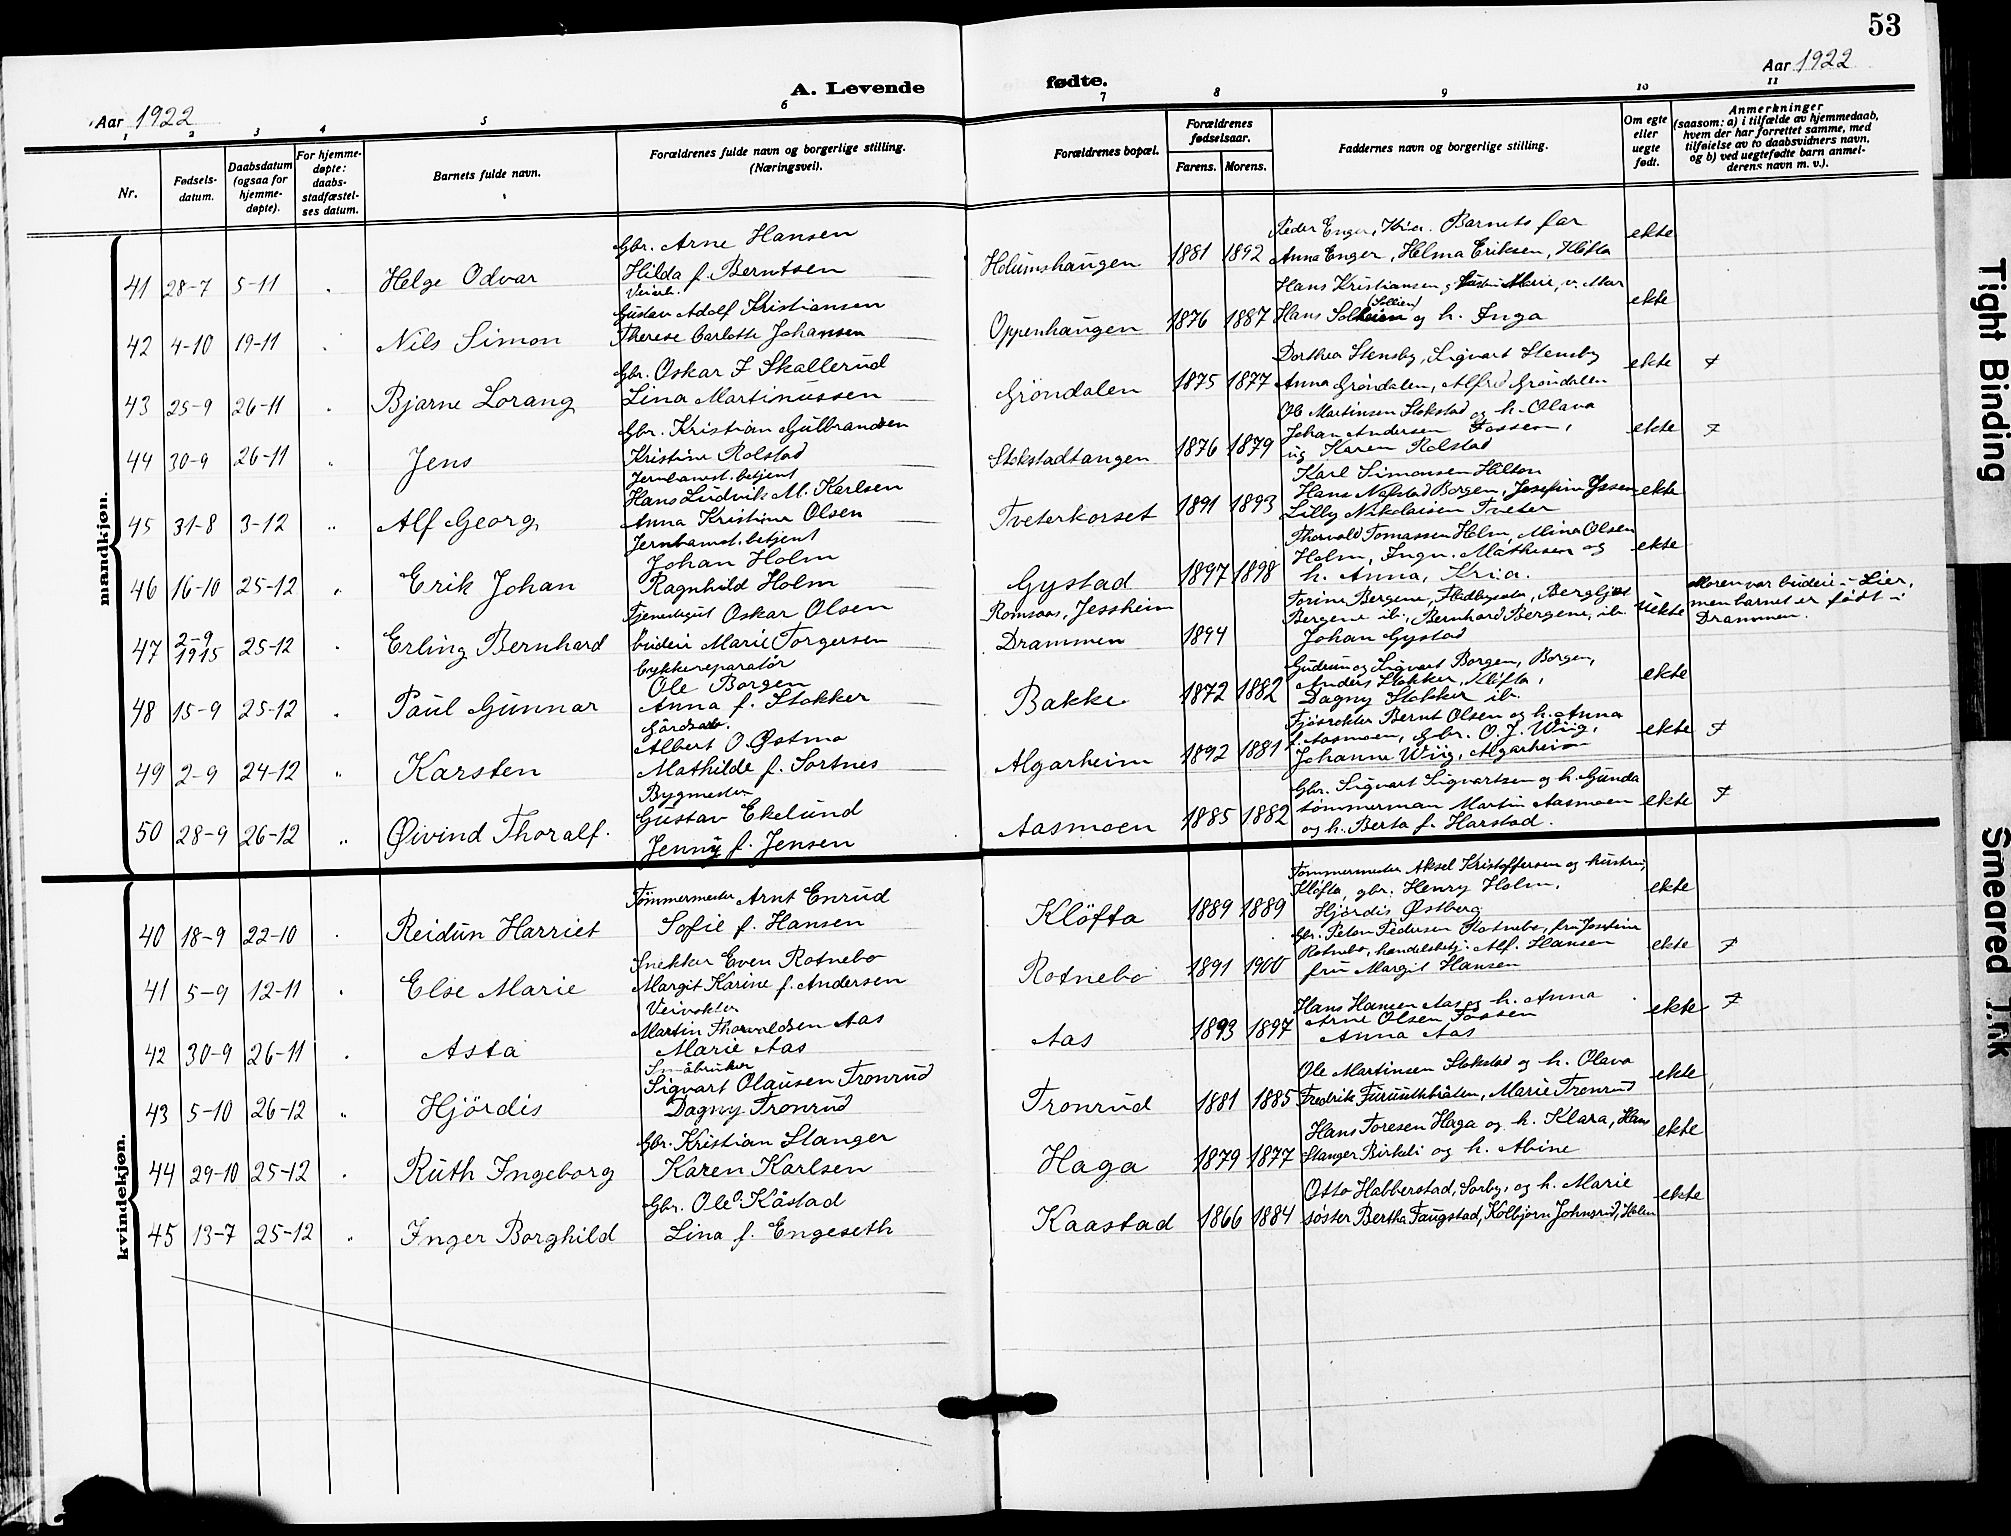 53
Aar 1922
A. Levende fødte.
Aar 1922
1 2 3 4 5 6 7 8 9 10 11
Nr.
Fødsels-
datum.
Daabsdatum
(ogsaa for
hjemme-
døpte).
For hjemme-
døpte:
daabs-
stadfæstel-
ses datum.
Barnets fulde navn.
Forældrenes fulde navn og borgerlige stilling.
(Næringsvei).
Forældrenes bopæl.
Forældrenes
fødselsaar.
Farens. Morens.
Faddernes navn og borgerlige stilling.
Om egte
eller
uegte
født.
Anmerkninger
(saasom: a) i tilfælde av hjemmedaab,
hvem der har forrettet samme, med
tilføielse av to daabsvidners navn,
og b) ved uegtefødte barn anmel-
derens navn m. v.).
mandkjøn.
Gbr. Arne Hansen
Peder Enger, Kria. Barnets far
41 28-7 5-11 Helge Odvar Hilda f. Berntsen Holumshaugen 1881 1892 Anna Enger, Helma Eriksen, Kløfta ekte
Veiarb.
Gustav Adolf Kristiansen
Hans Kristiansen
42 4-10 19-11 Nils Simon Therese Carlotte Johansen Oppenhaugen 1876 1887 Hans og h. Inga ekte
(Sollien)
Gbr. Oskar I Skallerud
Dorthea Stensby, Sigvart Stensby
43 25-9 26-11 Bjarne Lorang Lina Martinussen Gröndalen 1875 1877 Anna Gröndalen, Alfred Gröndalen ekte
Gbr. Kristian Gulbrandsen
Ole Martinsen Stokstad og h. Olava
Johan Andersen Fossen,
44 30-9 26-11 Jens Kristine Rolstad Stokstadtangen 1876 1879 og Karen Rolstad ekte
Jernbanet. betjent
Hans Ludvik M. Karlsen
Karl Simonsen Hilton
Hans Nafstad Borgen, Josefine
45 31-8 3-12 Alf Georg Anna Kristine Olsen Tveterkorset 1891 1893 Lilly Nikolaisen Tveter ekte
Jernbanet. betjent
Johan Holm
Thorvald Tomassen Holm, Mina Olsen
Holm, Ingv. Mathisen og
46 16-10 25-12 Erik Johan Ragnhild Holm Gystad 1897 1898 h. Anna, Kria. ekte
Tjenestegut Oskar Olsen
Romsaas, Jessheim
Torine Bergene, Bergljot
Bergene ib., Bernhard Bergene, ib.
47 2-9 1915 25-12 Erling Bernhard budeie Marie Torgersen Drammen 1894 Johan Gystad uekte
Moren var budeie i Lier,
men barnet er født i
Drammen.
Cykkereparatør
Ole Borgen
Gudrun og Sigvart Borgen, Borgen,
Anders Stokker, Kløfta,
48 15-9 25-12 Paul Gunnar Anna f. Stokker Bakke 1872 1882 Dagny Stokker ib. ekte
Gårdsarb.
Albert O. Østmo
Fjösrökter Bernt Olsen og h. Anna
f. Aasmoen, Gbr. O. J. Wiig,
49 2-9 24-12 Karsten Mathilde f. Sortnes Algarheim 1892 1881 Johanne Wiig, Algarheim ekte
Bygmester
Gustav Ekelund
Gbr. Sigvart Sigvartsen og h. Gunda
tømmerman Martin Aasmoen
50 28-9 26-12 Øivind Thoralf. Jenny f. Jensen Aasmoen 1885 1882 og h. Berta f. Harstad. ekte
kvindekjøn.
Tømmermester Arnt Enrud
Tømmermester Aksel Kristoffersen og hustru,
Kløfta, gbr. Henry Holm,
40 18-9 22-10 Reidun Harriet Sofie f. Hansen Klöfta 1889 1889 Hjördis Østberg ekte
Snekker Even Rotnebo
Gbr. Peter Pedersen Rotnebo, fru Josefine
Rotnebo, handelsbetj. Alf. Hansen
41 5-9 12-11 Else Marie Margit Karine f. Andersen Rotnebo 1891 1900 fru Margit Hansen ekte
Veivokter
Martin Thorvaldsen Aas
Hans Hansen Aas og h. Anna
Arne Olsen Fossen
42 30-9 26-11 Asta Marie Aas Aas 1893 1897 Anna Aas ekte
Småbruker
Sigvart Olausen Tronrud
Ole Martinsen Stokstad og h. Olava
43 5-10 26-12 Hjördis Dagny Tronrud Tronrud 1881 1885 Fredrik Furuuthbråten, Marie Tronrud ekte
Gbr. Kristian Stanger
Hans Toresen Haga og h. Klara, Hans
44 29-10 25-12 Ruth Ingeborg Karen Karlsen Haga 1879 1877 Stanger Birkeli og h. Abine ekte
Gbr. Ole Kåstad
Otto Habberstad, Sørby, og h. Marie
45 13-7 25-12 Inger Borghild Lina f. Engeseth Kaastad 1866 1884 søster Bertha Taugstad, Kolbjørn Johnsrud, Holm ekte
Tight Binding
Smeared Ink